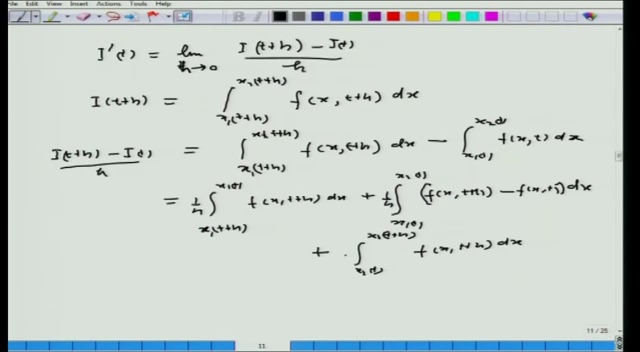 File Edit View Insert Actions Tools Help
I'(t) = lim_{h→0} (I(t+h) - I(t))/h
I(t+h) = ∫_{x₁(t+h)}^{x₂(t+h)} f(x, t+h) dx
(I(t+h) - I(t))/h = ∫_{x₁(t+h)}^{x₂(t+h)} f(x, t+h) dx - ∫_{x₁(t)}^{x₂(t)} f(x, t) dx
= 1/h ∫_{x₁(t+h)}^{x₁(t)} f(x, t+h) dx + 1/h ∫_{x₁(t)}^{x₂(t)} (f(x, t+h) - f(x, t)) dx
+ ∫_{x₂(t)}^{x₂(t+h)} f(x, t+h) dx
11 / 25
11